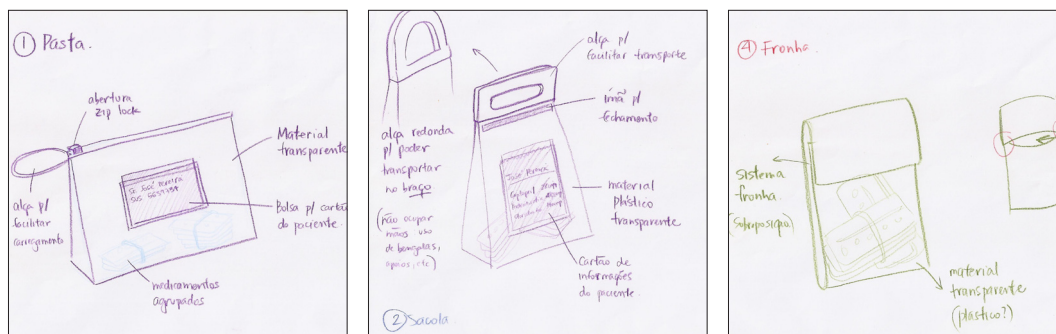 ① Pasta.
abertura
zip lock
Material
transparente
Bolsa p/ cartão
do paciente.
alça p/
facilitar
carregamento
medicamentos
agrupados
SR José Pereira
alça p/
facilitar transporte
ímã p/
fechamento
alça redonda
p/ poder
transportar
no braço
(não ocupar
mãos uso
de bengalas,
apoios, etc)
José Pereira
material
plástico
transparente
Cartão de
informações
do paciente.
② Sacola.
④ Fronha.
Sistema
fronha.
(sobreposição)
material
transparente
(plástico?)